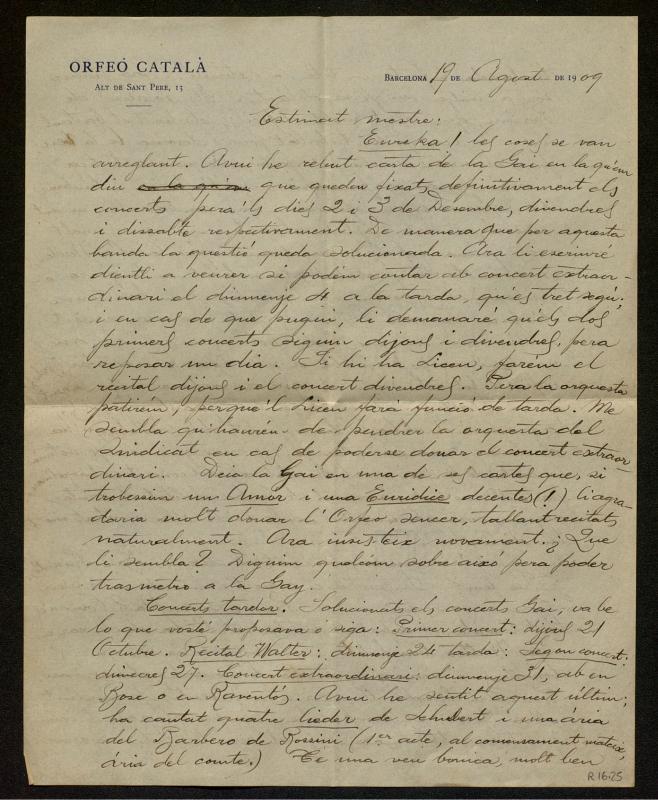 ORFEÓ CATALÀ
ALT DE SANT PERE, 13
BARCELONA 19 DE Agost DE 1909
Estimat mestre:
Eureka! les coses se van
arreglant. Avui he rebut carta de la Gai en la qu'em
diu en la qu'em que queden fixats definitivament els
concerts pera'ls dies 2 i 3 de Desembre, divendres
i dissabte respectivament. De manera que per aquesta
banda la questió queda solucionada. Ara li escriure
dientli a veurer si podém contar ab concert extraor-
dinari el diumenje 4 a la tarda, qu'es tret segú;
i en cas de que pugui, li demanaré qu'els dos
primers concerts siguin dijous i divendres, pera
reposar un dia. Si hi ha Liceu, farém el
recital dijous i el concert divendres. Pera la orquesta
patirém, perque'l Liceu farà funció de tarda. Me
sembla qu'haurém de pendrer la orquesta del
Sindicat en cas de poderse donar el concert extraor-
dinari. Deia la Gai en una de ses cartes que, si
trobessim un Amor i una Euridice decentes (!) li agra-
daria molt donar l'Orfeo sencer, tallant recitats
naturalment. Ara insisteix novament. ¿Que
li sembla? Diguim qualcóm sobre aixó pera poder
trasmetro a la Gay.
Concerts tardor. Solucionats els concerts Gai, va be
lo que vosté proposava ó siga: Primer concert: dijous 21
Octubre. Recital Walter: diumenje 24 tarda: Segon concert:
dimecres 27. Concert extraordinari: diumenje 31, ab en
Bosc o en Raventós. Avui he sentit aquest últim;
ha cantat quatre lieder de Schubert i una ària
del Barbero de Rossini (1er acte, al comensament mateix,
ària del comte.) Te una veu bonica, molt ben
R.16.25